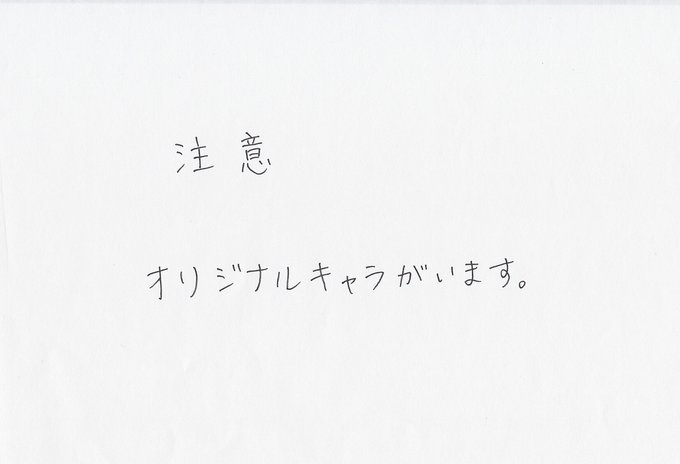 注意
オリジナルキャラがいます。